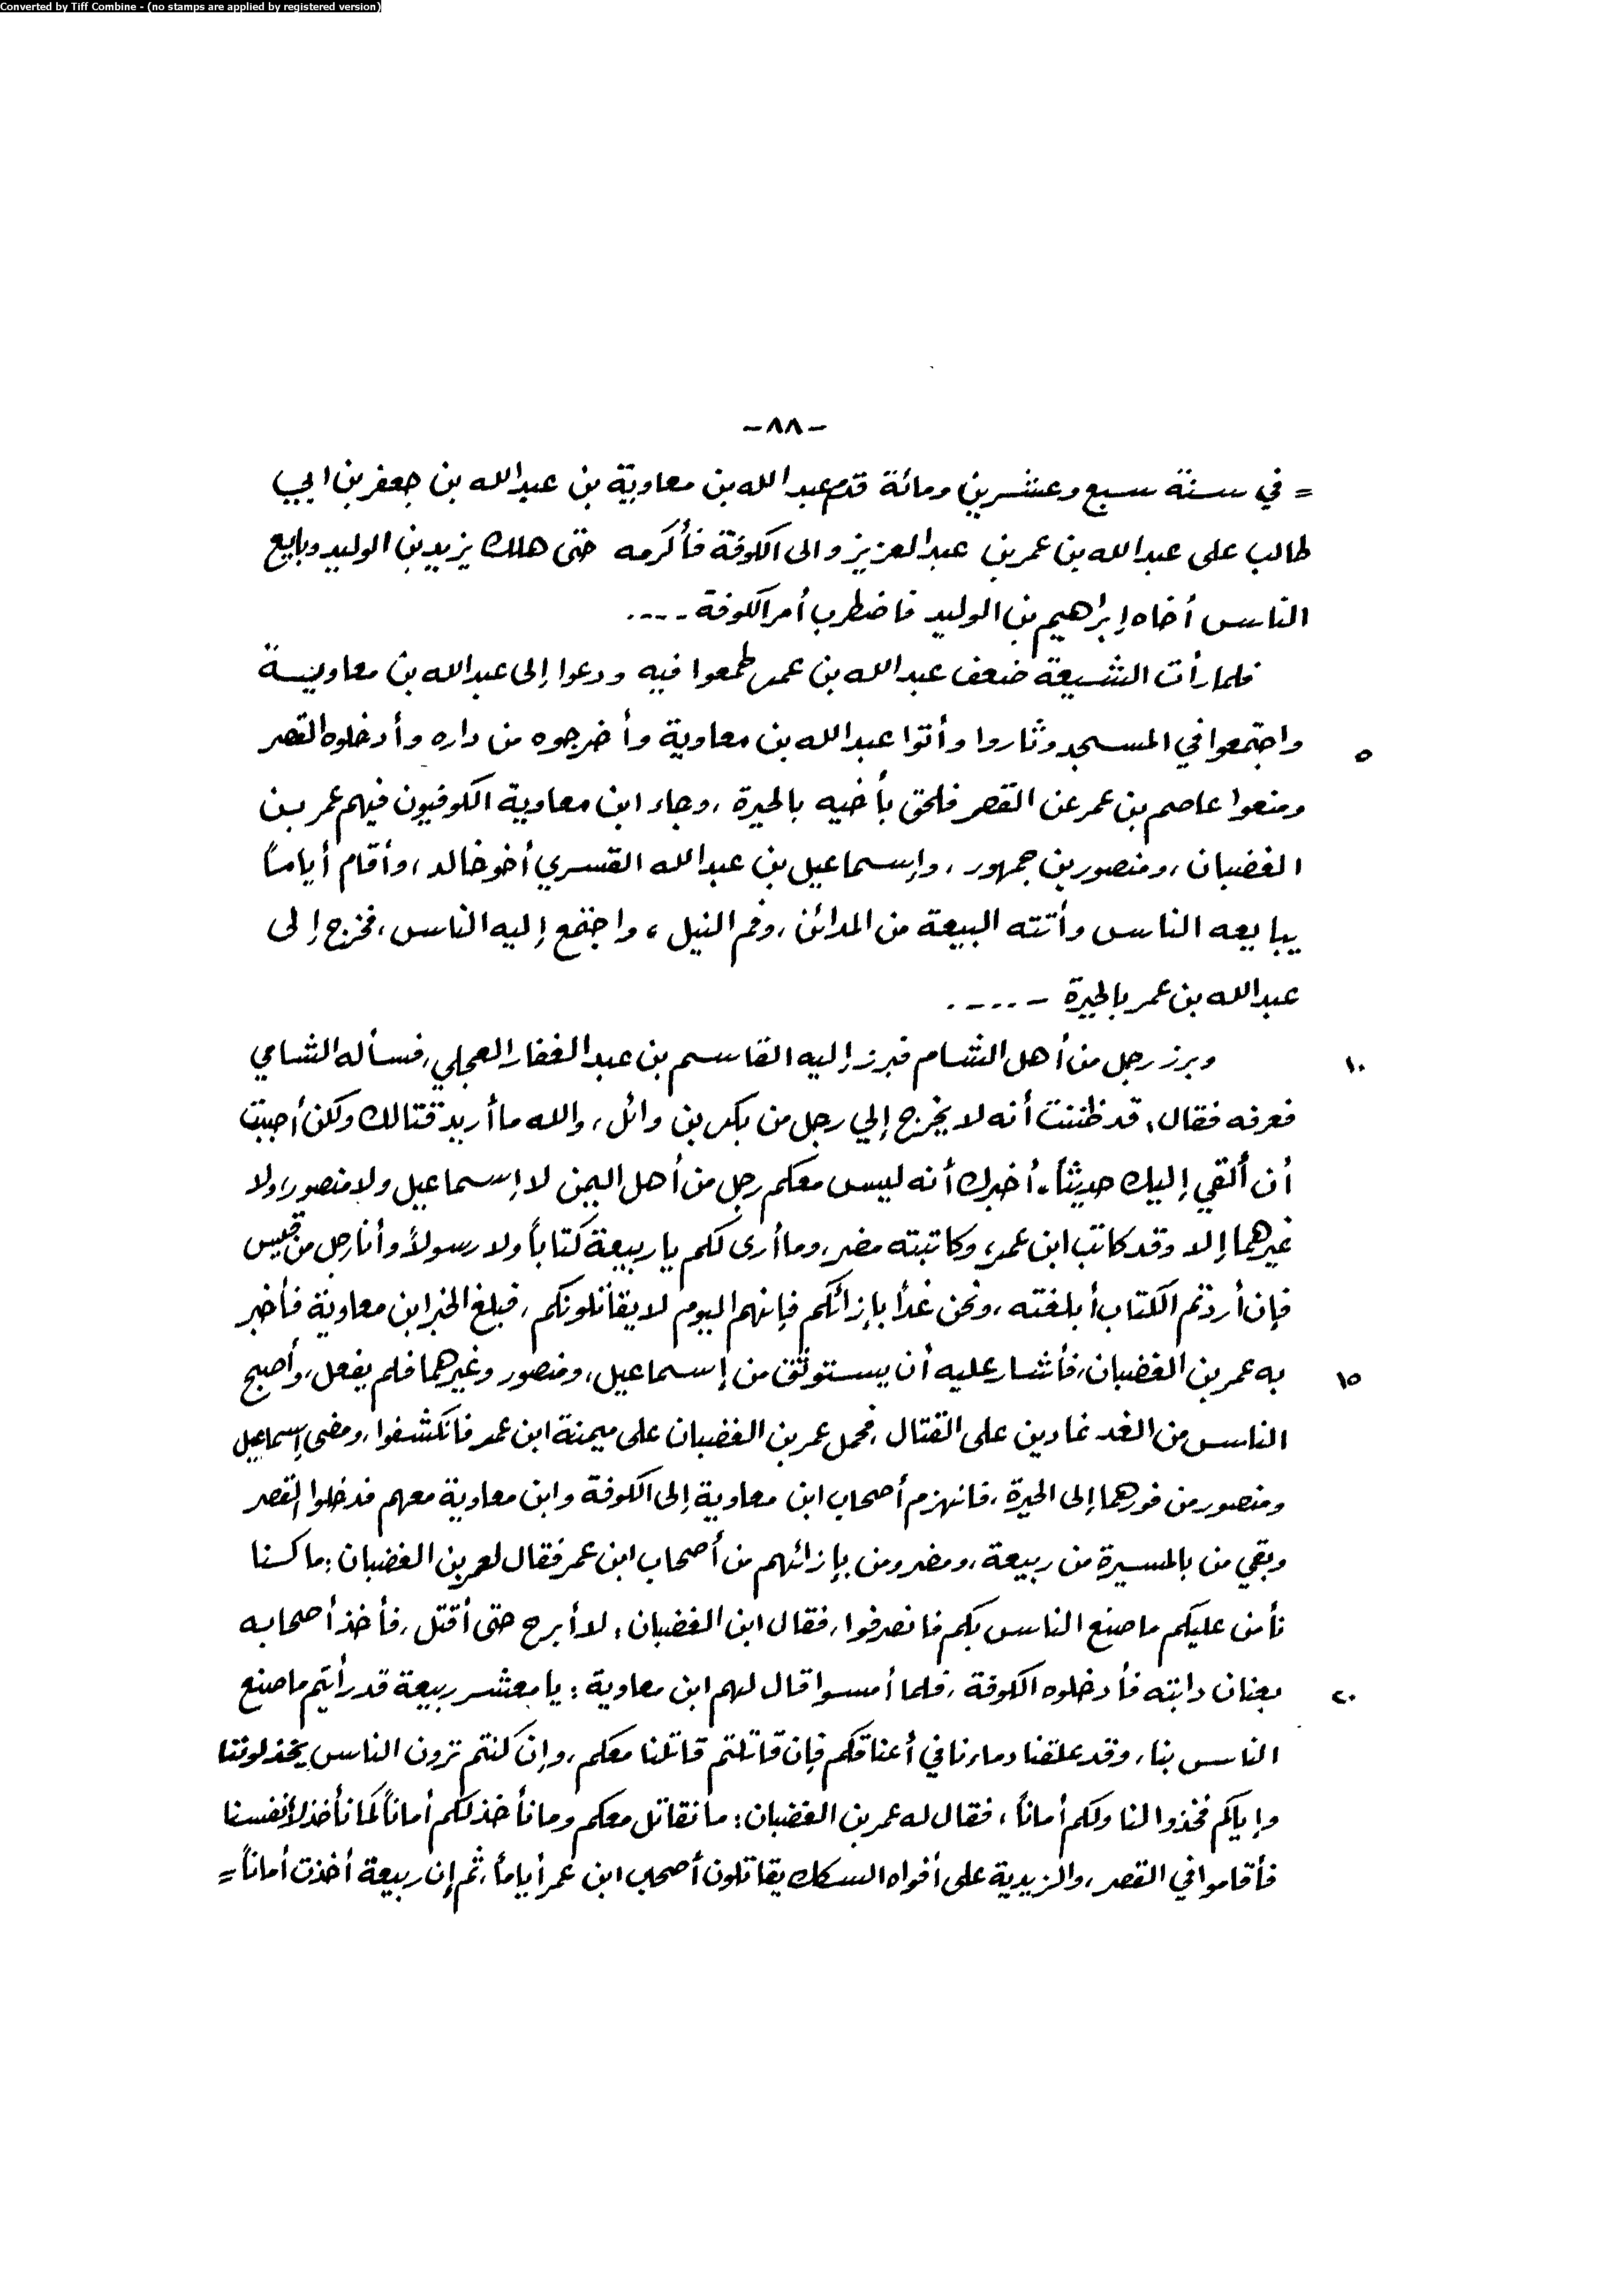 Converted by Tiff Combine - (no stamps are applied by registered version)
-٨٨-
= في سنة سبع وعشرين ومائة قدم عبدالله بن معاوية بن عبدالله بن جعفر بن ابي
طالب على عبدالله بن عمر بن عبدالعزيز والى الكوفة فأكرمه حتى هلك يزيد بن الوليد وبايع
الناس أخاه إبراهيم بن الوليد فاضطرب أمر الكوفة ....
فلما رأت الشيعة ضعف عبدالله بن عمر طمعوا فيه ودعوا إلى عبدالله بن معاوية
واجتمعوا في المسجد وثاروا وأتوا عبدالله بن معاوية وأخرجوه من داره وأدخلوه القصر
٥
ومنعوا عاصم بن عمر عن القصر فلحق بأخيه بالحيرة، وجاء ابن معاوية الكوفيون فيهم عمر بن
الغضبان، ومنصور بن جمهور، وإسماعيل بن عبدالله القسري أخو خالد، وأقام أياماً
يبايعه الناس وأتته البيعة من المدائن، وفم النيل، واجتمع إليه الناس، فخرج إلى
عبدالله بن عمر بالحيرة .....
وبرز رجل من أهل الشام فبرز إليه القاسم بن عبدالغفار العجلي، فسأله الشامي
١٠
فعرفه فقال: قد ظننت أنه لا يخرج إلي رجل من بكر بن وائل، والله ما أريد قتالك ولكن أحببت
أن ألقي إليك حديثاً، أخبرك أنه ليس معكم رجل من أهل اليمن لا إسماعيل ولا منصور، ولا
غيرهما إلا وقد كاتب ابن عمر، وكاتبته مضر، وما أرى لكم يا ربيعة كتاباً ولا رسولاً وأنا رجل من قيس
فإن أردتم الكتاب أبلغته، ونحن غداً بإزائكم فإنهم اليوم لا يقاتلونكم، فبلغ الخبر ابن معاوية فأخبر
به عمر بن الغضبان، فأشار عليه أن يستوثق من إسماعيل، ومنصور وغيرهما فلم يفعل، وأصبح
١٥
الناس من الغد غادين على القتال، فحمل عمر بن الغضبان على ميمنة ابن عمر فانكشفوا، ومضى إسماعيل
ومنصور من فورهما إلى الحيرة، فانهزم أصحاب ابن معاوية إلى الكوفة وابن معاوية معهم فدخلوا القصر
وبقي من بالمسيرة من ربيعة، ومضر ومن بإزائهم من أصحاب ابن عمر فقال لعمر بن الغضبان: ما كنا
نأمن عليكم ما صنع الناس بكم فانصرفوا، فقال ابن الغضبان: لا أبرح حتى أقتل، فأخذ أصحابه
بعنان دابته فأدخلوه الكوفة، فلما أمسوا قال لهم ابن معاوية: يا معشر ربيعة قد رأيتم ما صنع
٢٠
الناس بنا، وقد علقنا دماءنا في أعناقكم فإن قاتلتم قاتلنا معكم، وإن كنتم ترون الناس يخذلوننا
وإياكم فخذوا لنا ولكم أماناً، فقال له عمر بن الغضبان: ما نقاتل معكم وما نأخذ لكم أماناً كما نأخذ لأنفسنا
فأقاموا في القصر، والزيدية على أفواه السكك يقاتلون أصحاب ابن عمر أياماً، ثم إن ربيعة أخذت أماناً =